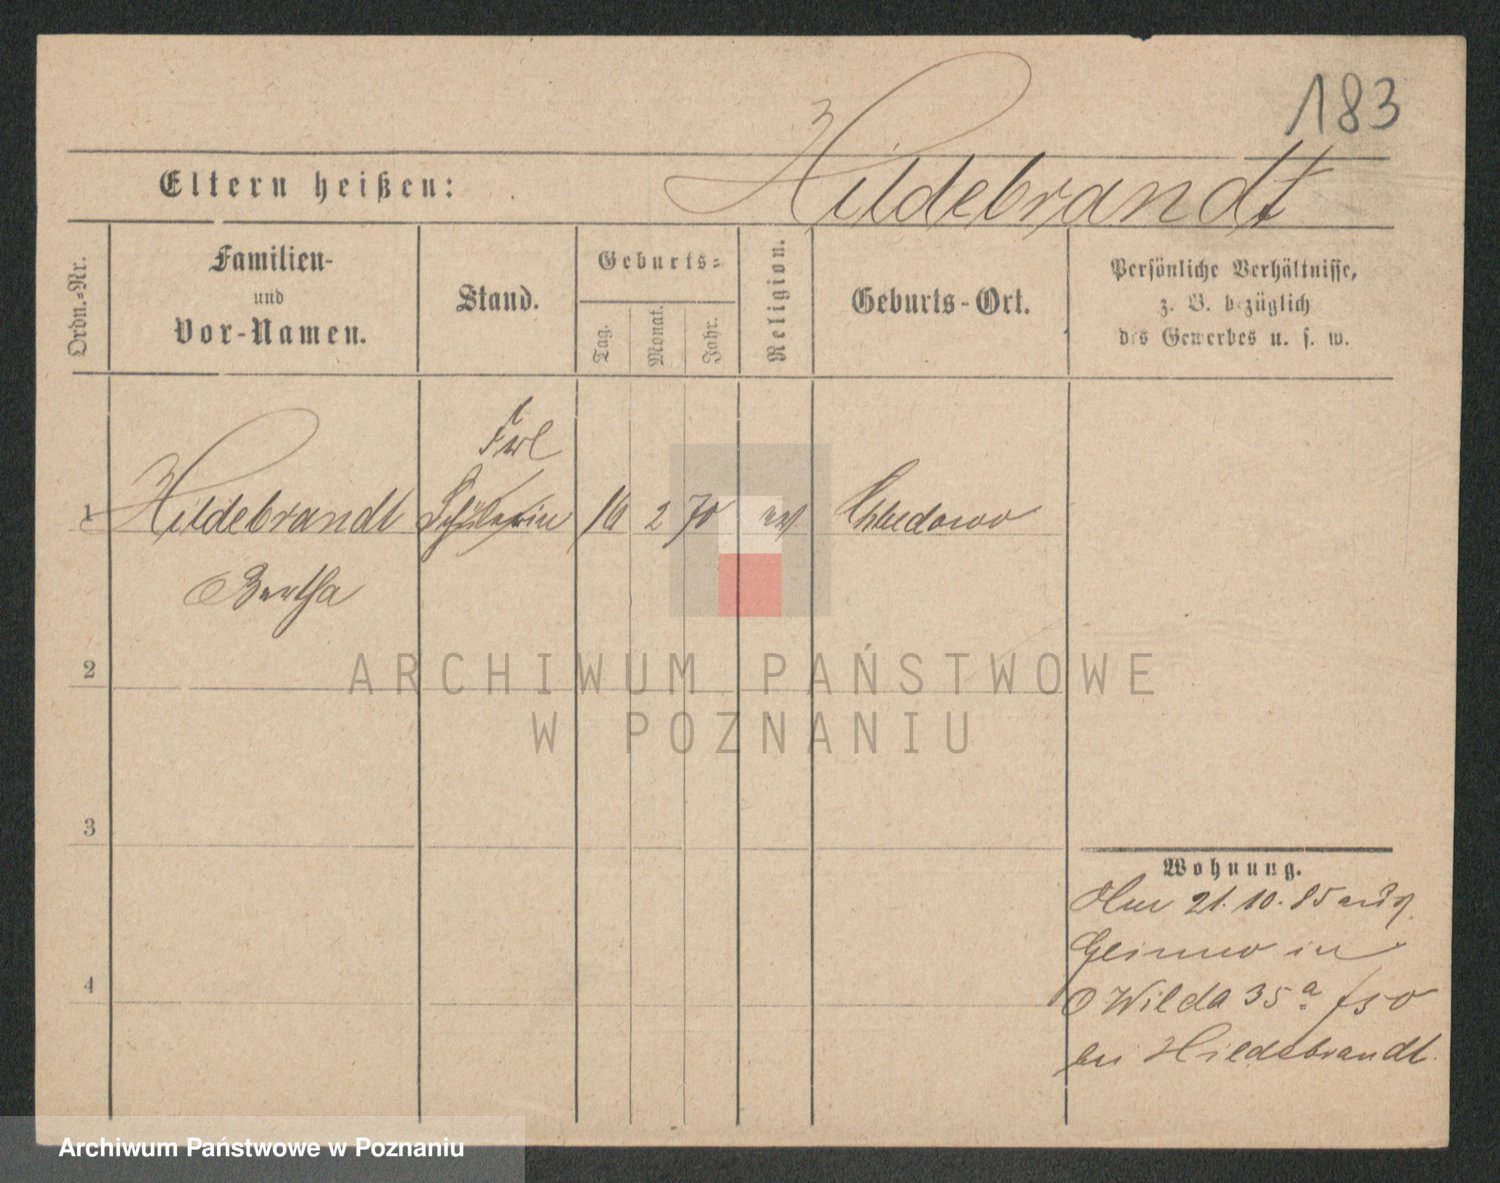 183
Eltern heißen: Hildebrandt
Ordn.-Nr.
Familien-
und
Vor-Namen.
Stand.
Geburts-
Tag.
Monat.
Jahr.
Religion.
Geburts-Ort.
Persönliche Verhältnisse,
z. B. bezüglich
des Gewerbes u. s. w.
Frl
1 Hildebrandt Schülerin 16 2 70 ev
Bertha
2
3
4
ARCHIWUM PAŃSTWOWE
W POZNANIU
Wohnung.
21.10.85 aus
in
O Wilda 35a
bei Hildebrandt.
Archiwum Państwowe w Poznaniu